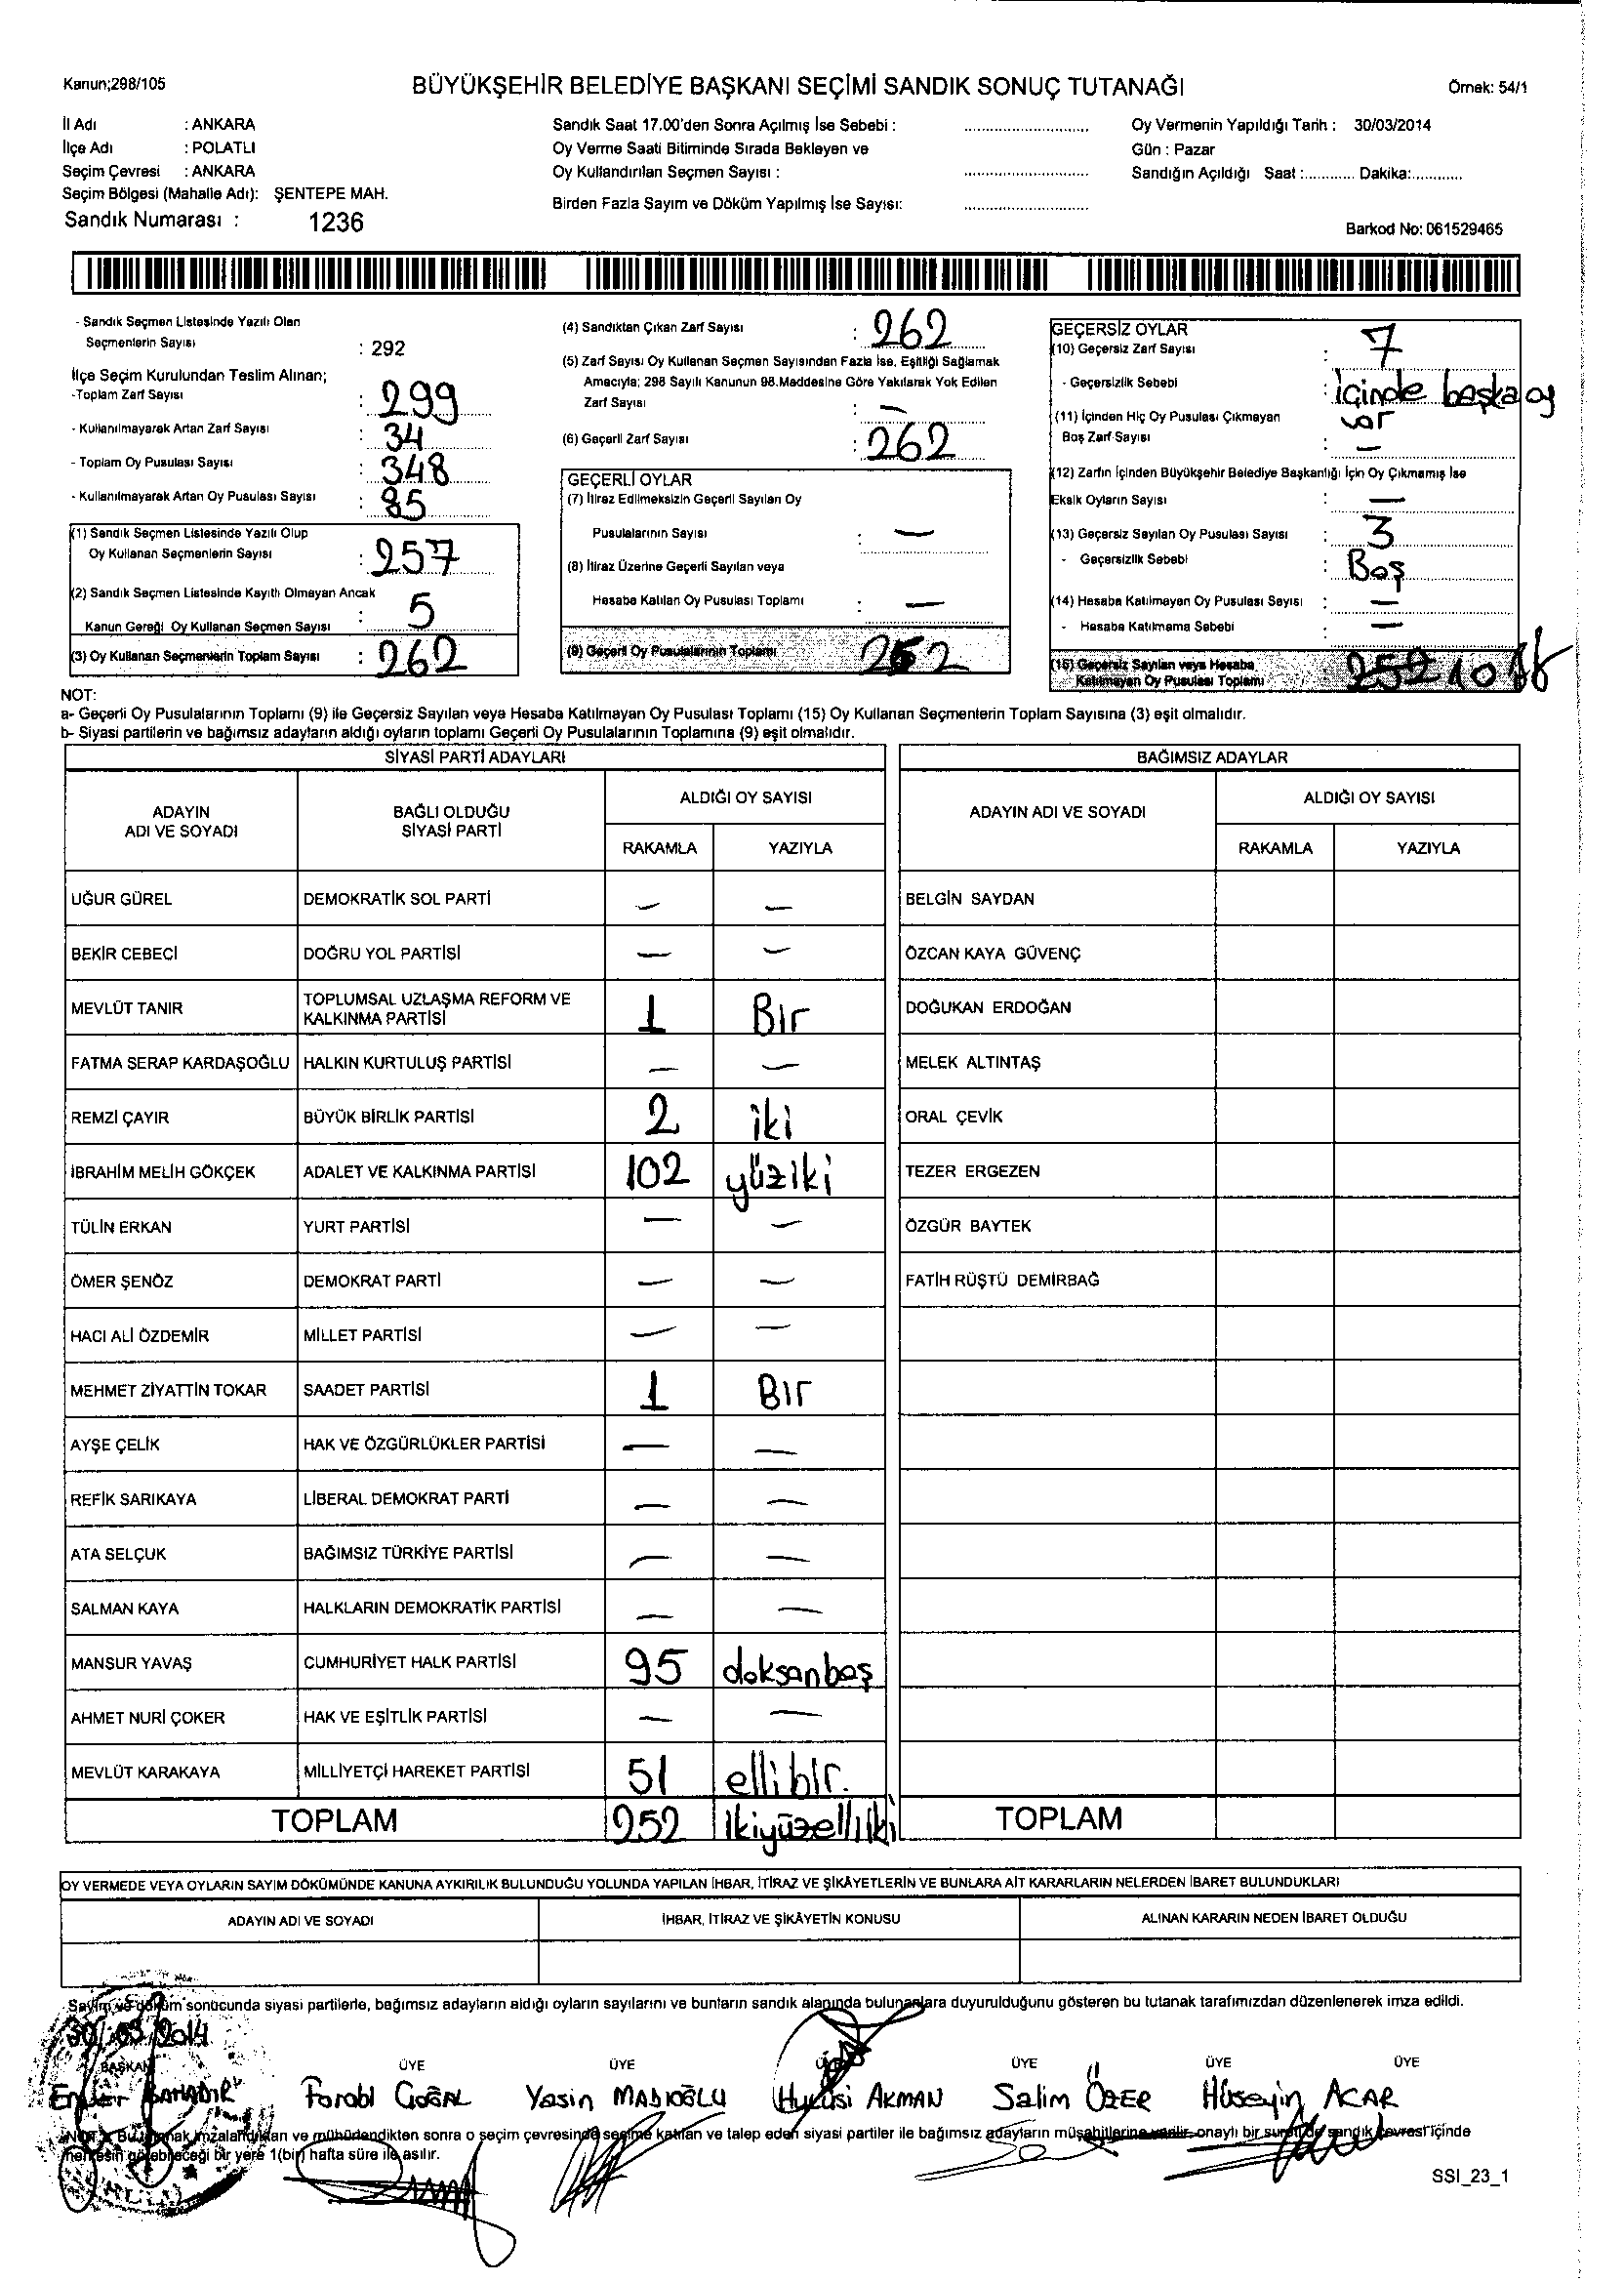 Kanun;298/105
BÜYÜKŞEHİR BELEDİYE BAŞKANI SEÇİMİ SANDIK SONUÇ TUTANAĞI
Örnek: 54/1
İl Adı : ANKARA
İlçe Adı : POLATLI
Seçim Çevresi : ANKARA
Seçim Bölgesi (Mahalle Adı): ŞENTEPE MAH.
Sandık Numarası : 1236
Sandık Saat 17.00'den Sonra Açılmış İse Sebebi : ................................
Oy Verme Saati Bitiminde Sırada Bekleyen ve
Oy Kullandırılan Seçmen Sayısı : ................................
Birden Fazla Sayım ve Döküm Yapılmış İse Sayısı: ................................
Oy Vermenin Yapıldığı Tarih : 30/03/2014
Gün : Pazar
Sandığın Açıldığı Saat :............ Dakika:............
Barkod No: 061529465
- Sandık Seçmen Listesinde Yazılı Olan
Seçmenlerin Sayısı : 292
İlçe Seçim Kurulundan Teslim Alınan;
-Toplam Zarf Sayısı : 299
- Kullanılmayarak Artan Zarf Sayısı : 34
- Toplam Oy Pusulası Sayısı : 348
- Kullanılmayarak Artan Oy Pusulası Sayısı : 85
(1) Sandık Seçmen Listesinde Yazılı Olup
Oy Kullanan Seçmenlerin Sayısı : 257
(2) Sandık Seçmen Listesinde Kayıtlı Olmayan Ancak
Kanun Gereği Oy Kullanan Seçmen Sayısı : 5
(3) Oy Kullanan Seçmenlerin Toplam Sayısı : 262
(4) Sandıktan Çıkan Zarf Sayısı : 262
(5) Zarf Sayısı Oy Kullanan Seçmen Sayısından Fazla İse, Eşitliği Sağlamak
Amacıyla; 298 Sayılı Kanunun 98.Maddesine Göre Yakılarak Yok Edilen
Zarf Sayısı : —
(6) Geçerli Zarf Sayısı : 262
GEÇERLİ OYLAR
(7) İtiraz Edilmeksizin Geçerli Sayılan Oy
Pusulalarının Sayısı : —
(8) İtiraz Üzerine Geçerli Sayılan veya
Hesaba Katılan Oy Pusulası Toplamı : —
(9) Geçerli Oy Pusulalarının Toplamı 252
GEÇERSİZ OYLAR
(10) Geçersiz Zarf Sayısı : 7
- Geçersizlik Sebebi : İçinde başka oy
var
(11) İçinden Hiç Oy Pusulası Çıkmayan
Boş Zarf Sayısı : —
(12) Zarfın İçinden Büyükşehir Belediye Başkanlığı İçin Oy Çıkmamış İse
Eksik Oyların Sayısı : —
(13) Geçersiz Sayılan Oy Pusulası Sayısı : 3
- Geçersizlik Sebebi : Boş
(14) Hesaba Katılmayan Oy Pusulası Sayısı : —
- Hesaba Katılmama Sebebi : —
(15) Geçersiz Sayılan veya Hesaba
Katılmayan Oy Pusulası Toplamı 252 10
NOT:
a- Geçerli Oy Pusulalarının Toplamı (9) ile Geçersiz Sayılan veya Hesaba Katılmayan Oy Pusulası Toplamı (15) Oy Kullanan Seçmenlerin Toplam Sayısına (3) eşit olmalıdır.
b- Siyasi partilerin ve bağımsız adayların aldığı oyların toplamı Geçerli Oy Pusulalarının Toplamına (9) eşit olmalıdır.
SİYASİ PARTİ ADAYLARI
ADAYIN ADI VE SOYADI BAĞLI OLDUĞU SİYASİ PARTİ ALDIĞI OY SAYISI
RAKAMLA YAZIYLA
UĞUR GÜREL DEMOKRATİK SOL PARTİ — —
BEKİR CEBECİ DOĞRU YOL PARTİSİ — —
MEVLÜT TANIR TOPLUMSAL UZLAŞMA REFORM VE KALKINMA PARTİSİ 1 Bir
FATMA SERAP KARDAŞOĞLU HALKIN KURTULUŞ PARTİSİ — —
REMZİ ÇAYIR BÜYÜK BİRLİK PARTİSİ 2 iki
İBRAHİM MELİH GÖKÇEK ADALET VE KALKINMA PARTİSİ 102 yüziki
TÜLİN ERKAN YURT PARTİSİ — —
ÖMER ŞENÖZ DEMOKRAT PARTİ — —
HACI ALİ ÖZDEMİR MİLLET PARTİSİ — —
MEHMET ZİYATTİN TOKAR SAADET PARTİSİ 1 Bir
AYŞE ÇELİK HAK VE ÖZGÜRLÜKLER PARTİSİ — —
REFİK SARIKAYA LİBERAL DEMOKRAT PARTİ — —
ATA SELÇUK BAĞIMSIZ TÜRKİYE PARTİSİ — —
SALMAN KAYA HALKLARIN DEMOKRATİK PARTİSİ — —
MANSUR YAVAŞ CUMHURİYET HALK PARTİSİ 95 doksanbeş
AHMET NURİ ÇOKER HAK VE EŞİTLİK PARTİSİ — —
MEVLÜT KARAKAYA MİLLİYETÇİ HAREKET PARTİSİ 51 ellibir.
TOPLAM 252 ikiyüzelliiki
BAĞIMSIZ ADAYLAR
ADAYIN ADI VE SOYADI ALDIĞI OY SAYISI
RAKAMLA YAZIYLA
BELGİN SAYDAN
ÖZCAN KAYA GÜVENÇ
DOĞUKAN ERDOĞAN
MELEK ALTINTAŞ
ORAL ÇEVİK
TEZER ERGEZEN
ÖZGÜR BAYTEK
FATİH RÜŞTÜ DEMİRBAĞ
TOPLAM
OY VERMEDE VEYA OYLARIN SAYIM DÖKÜMÜNDE KANUNA AYKIRILIK BULUNDUĞU YOLUNDA YAPILAN İHBAR, İTİRAZ VE ŞİKÂYETLERİN VE BUNLARA AİT KARARLARIN NELERDEN İBARET BULUNDUKLARI
ADAYIN ADI VE SOYADI İHBAR, İTİRAZ VE ŞİKÂYETİN KONUSU ALINAN KARARIN NEDEN İBARET OLDUĞU
Sayım ve döküm sonucunda siyasi partilerle, bağımsız adayların aldığı oyların sayılarını ve bunların sandık alanında bulunanlara duyurulduğunu gösteren bu tutanak tarafımızdan düzenlenerek imza edildi.
30/03/2014
BAŞKAN ÜYE ÜYE ÜYE ÜYE ÜYE ÜYE
Enver BAHADIR Farabi GÖĞAL Yasin MADIOĞLU Hulusi AKMAN Salim ÖZER Hüseyin ACAR
NOT : Bu tutanak imzalandıktan ve mühürlendikten sonra o seçim çevresinde seçime katılan ve talep eden siyasi partiler ile bağımsız adayların müşahitlerine verilir, onaylı bir sureti de sandık çevresi içinde
herkesin görebileceği bir yere 1(bir) hafta süre ile asılır.
SSI_23_1